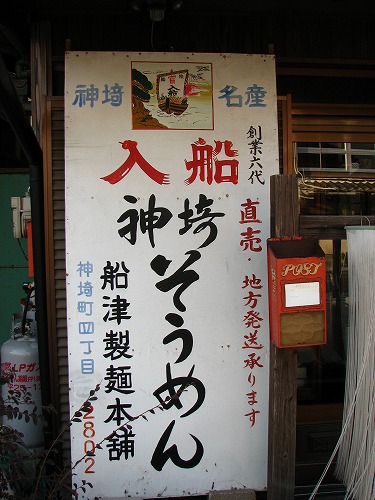 神埼 名産
創業六代
入船
神埼そうめん
直売・地方発送承ります
船津製麺本舗
神埼町四丁目
2802
POST
LPガス